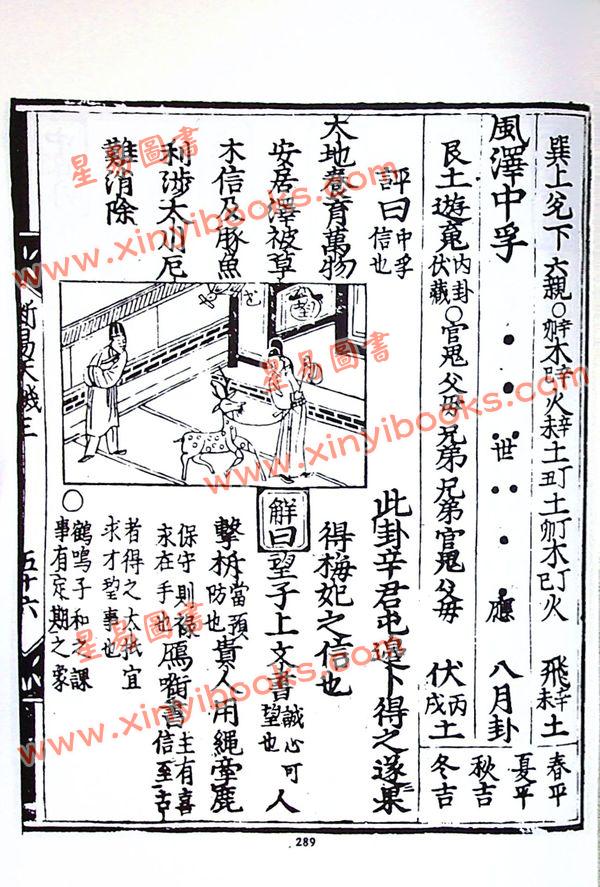 巽上兌下六親○辛卯木辛巳火辛未土丁丑土丁卯木丁巳火 飛辛未土
風澤中孚 世 應 八月卦
艮土遊䰟內卦伏藏○官鬼父母兄弟兄弟官鬼父母 伏丙戌土
春平
夏平
秋吉
冬吉
評曰中孚信也
天地養育萬物
安居澤被草
木信及豚魚
利涉大川厄
難消除
望
此卦辛君屯邅卜得之遂果
得梅妃之信也
解曰望子上文書誠心可望也人
擊柝當預防也貴人用繩牽鹿
保守則祿求在手也鴈啣書主有喜信至古
者得之大抵宜求才望事也
○鶴鳴子和之課事有定期之象
斷易天機三
五十六
289
星易圖書
www.xinyibooks.com
星易圖書
www.xinyibooks.com
星易圖書
www.xinyibooks.com